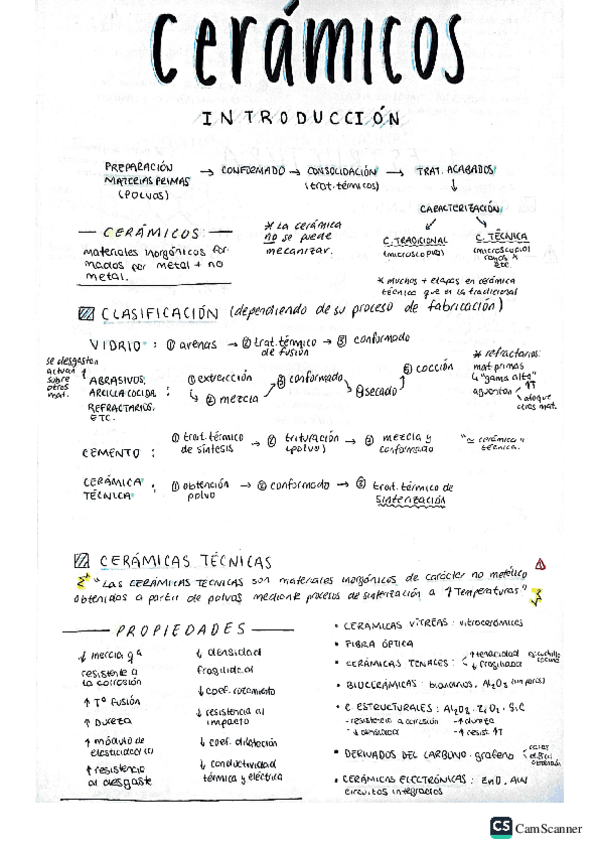 cerámicos
INTRODUCCIÓN
PREPARACIÓN MATERIAS PRIMAS (POLVOS) → CONFORMADO → CONSOLIDACIÓN (trat. térmicos) → TRAT. ACABADOS
↓
CARACTERIZACIÓN
C. TRADICIONAL (microscopio)
C. TÉCNICA (microscopio, rayos X, etc.
* muchas + etapas en cerámica
técnica que en la tradicional
— CERÁMICOS —
materiales inorgánicos for
mados por metal + no
metal.
* La cerámica
no se puede
mecanizar.
CLASIFICACIÓN (dependiendo de su proceso de fabricación)
VIDRIO: ① arenas → ② trat. térmico de fusión → ③ conformado
se desgastan
actúan
sobre
otros
mat.
ABRASIVOS,
ARCILLA COCIDA,
REFRACTARIOS,
ETC.
: ① extracción → ② mezcla → ③ conformado → ④ secado → ⑤ cocción
* refractarios:
mat. primas
↳ "gama alta"
aguantan ↑T
ataque
otros mat.
CEMENTO : ① trat. térmico de síntesis → ② trituración (polvo) → ③ mezcla y conformado
"≃ cerámica técnica.
CERÁMICA TÉCNICA : ① obtención polvo → ② conformado → ③ trat. térmico de sinterización
CERÁMICAS TÉCNICAS
"Las CERÁMICAS TÉCNICAS son materiales inorgánicos de carácter no metálico
obtenidos a partir de polvos mediante procesos de sinterización a ↑ Temperaturas"
— PROPIEDADES —
↓ inercia qª
resistente a
la corrosión
↑ Tº fusión
↑ Dureza
↑ módulo de
elasticidad
↑ resistencia
al desgaste
↓ densidad
fragilidad
↓ coef. rozamiento
↓ resistencia al
impacto
↓ coef. dilatación
↓ conductividad
térmica y eléctrica
• CERÁMICAS VÍTREAS: vitrocerámicos
• FIBRA ÓPTICA
• CERÁMICAS TENACES: ↑ tenacidad ↓ fragilidad
cocina
• BIOCERÁMICAS: Al₂O₃
• C. ESTRUCTURALES: Al₂O₃, ZrO₂, SiC
- resistencia a corrosión - ↑ dureza
- ↓ densidad - ↑ resist ↑T
• DERIVADOS DEL CARBONO: grafeno
• CERÁMICAS ELECTRÓNICAS: ZnO, AlN
circuitos integrados
CS CamScanner